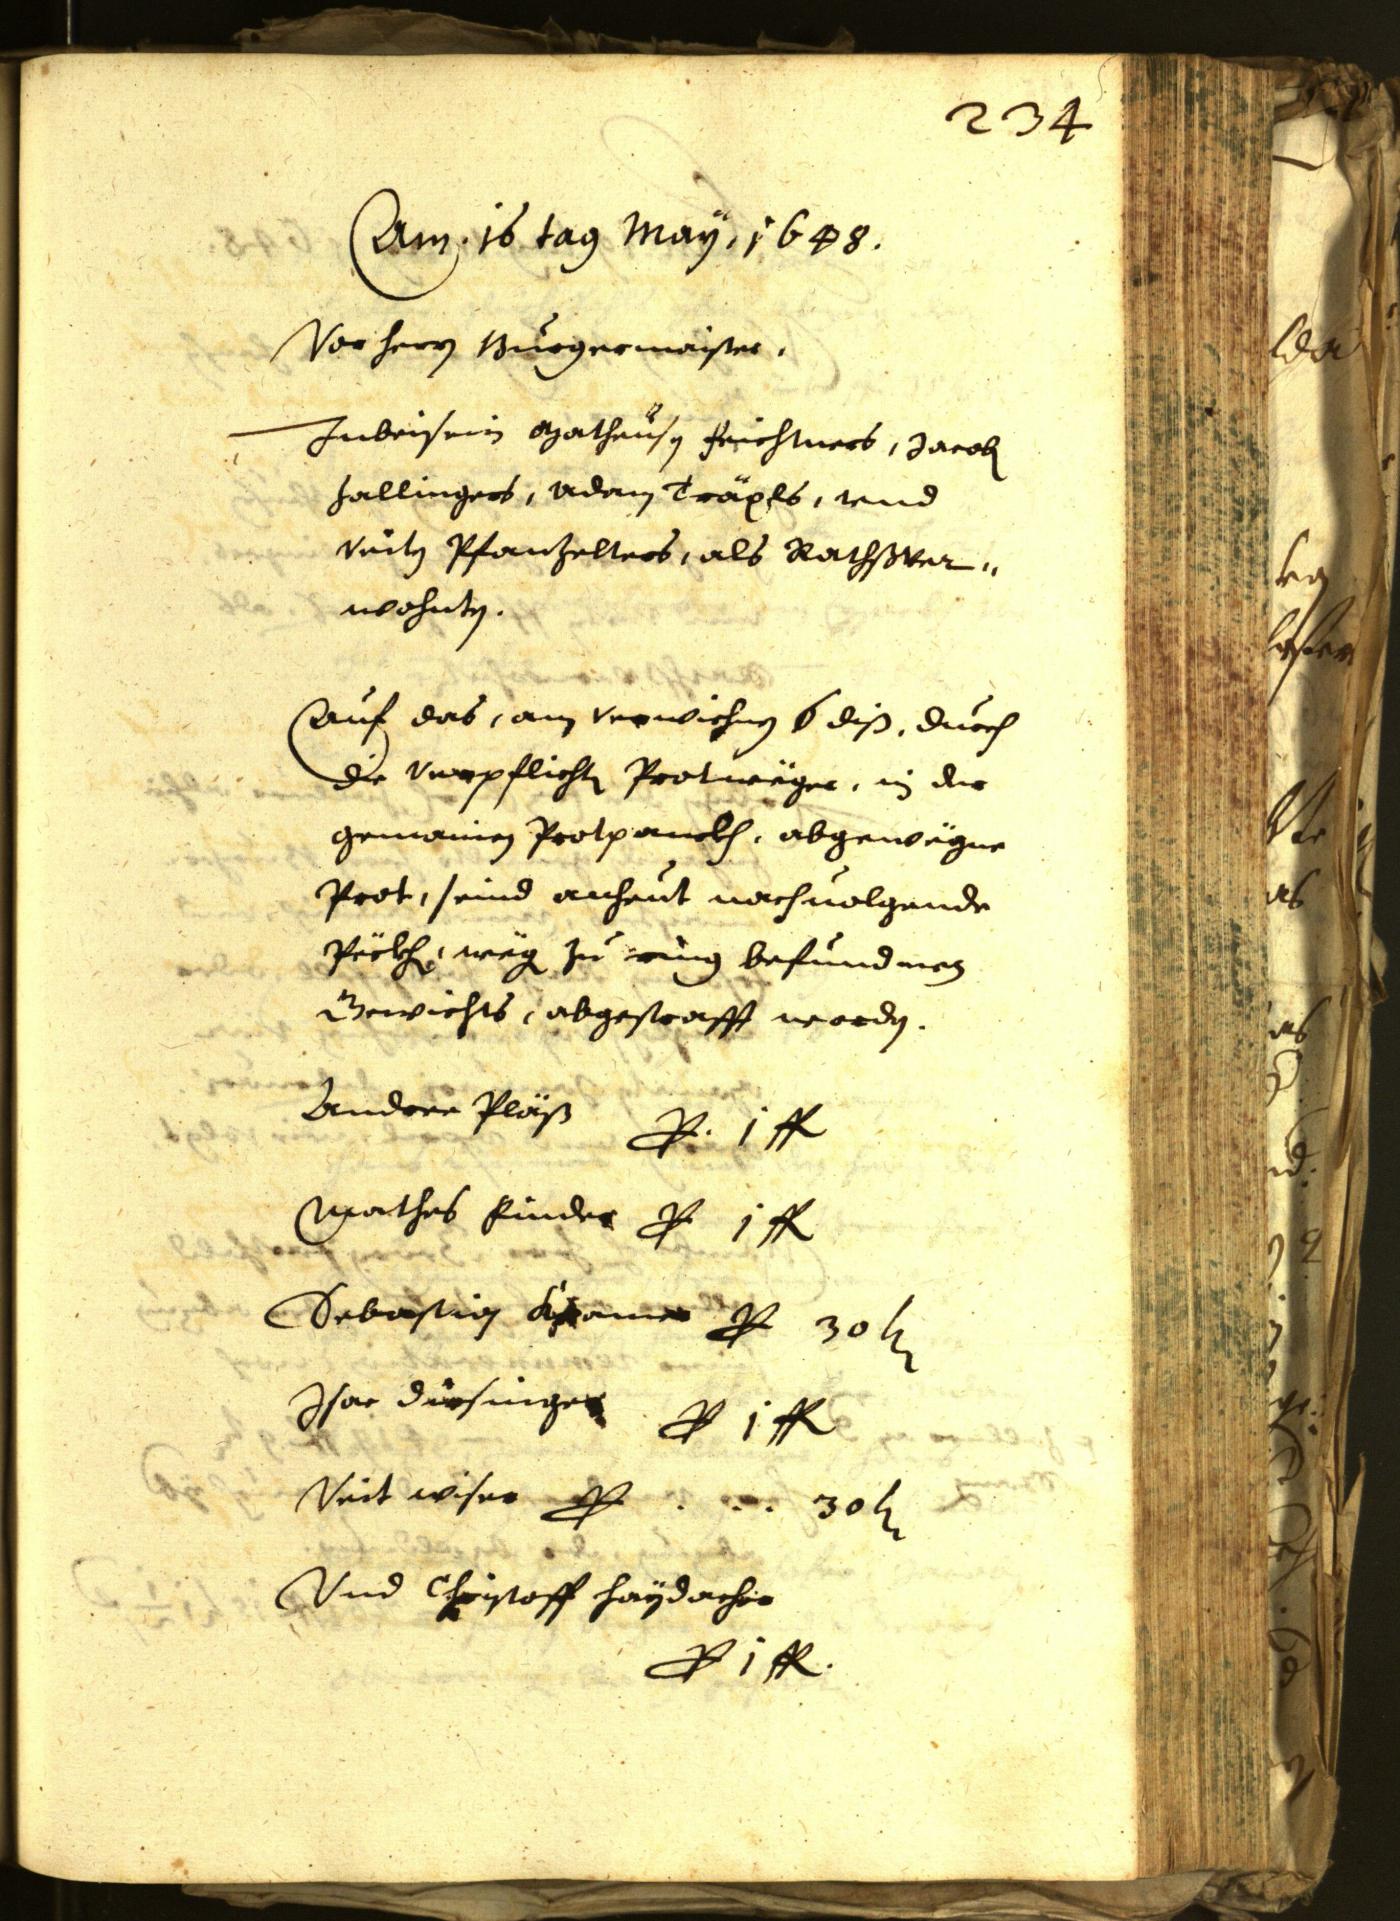 234
Am. 16 tag May, 1648.
Vor herrn Burgermaister.
Inbeisein Matheusn Feichtners, Jacob
Hallingers, Adam Träxls, vnd
Veitn Pfantzelters, als Rathßver„
wohntn.
Auf das, am verwichnen 6 diß, durch
die verpflichte Protweger, in der
gemainen Protpanckh, abgewegne
Prot, seind anheut nachuolgende
Peckhen, weg zu ring befundnen
Gewichts, abgestrafft worden.
Andree Pläß P. 1 fl
Mathes Kinder P 1 fl
Sebastian Kramer P 30 kr
Isac Dirsinger P 1 fl
Veit wiser P . . . 30 kr
Vnd Christoff Haydacher
P 1 fl.